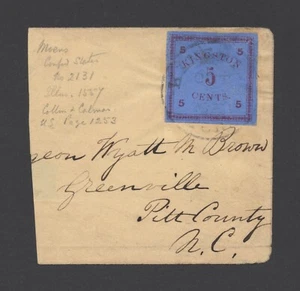 Moens
Confed States
No 2131
Illus. 1557
Collin & Calman
U.S. Page 1253
KINSTON
5
CENTS.
5 5
5 5
geon Wyatt M Brown
Greenville
Pitt County
N.C.